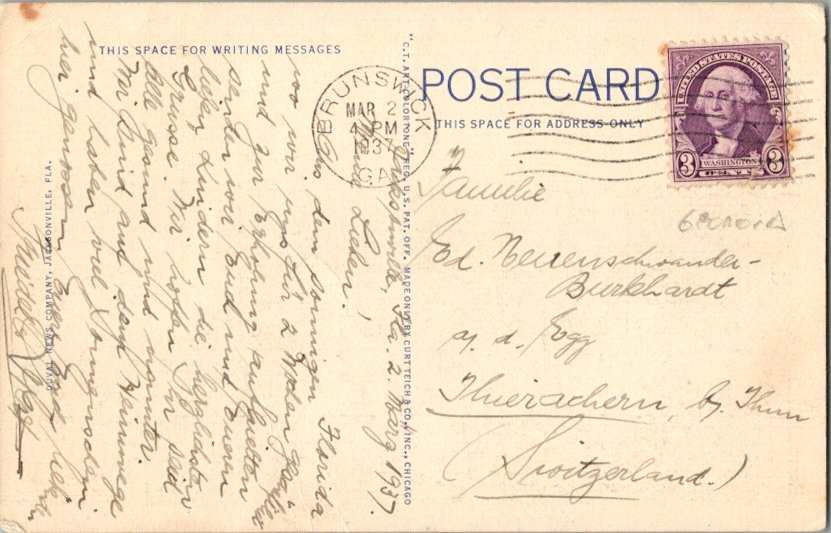 THIS SPACE FOR WRITING MESSAGES
Jacksonville, Fla. 2. März 1937.
Meine Lieben!
Aus dem sonnigen Florida
wo wir uns für 2 Wochen
und zur Erholung aufhalten
senden wir Euch und Euren
lieben Kindern die herzlichsten
Grüsse. Wir hoffen Ihr seid
alle gesund und munter.
Wir sind auf dem Heimwege
und haben viel Sonnenschein
hier genossen.
DUVAL NEWS COMPANY, JACKSONVILLE, FLA.
"C.T. ART-COLORTONE" REG. U.S. PAT. OFF. MADE ONLY BY CURT TEICH & CO., INC., CHICAGO
POST CARD
THIS SPACE FOR ADDRESS ONLY
BRUNSWICK
MAR 2
4 PM
1937
GA.
UNITED STATES POSTAGE
3 WASHINGTON 3
CENTS
GEORGIA
Familie
Ed. Neuenschwander-
Burkhardt
a. d. Egg
Thierachern, b/ Thun
(Switzerland.)